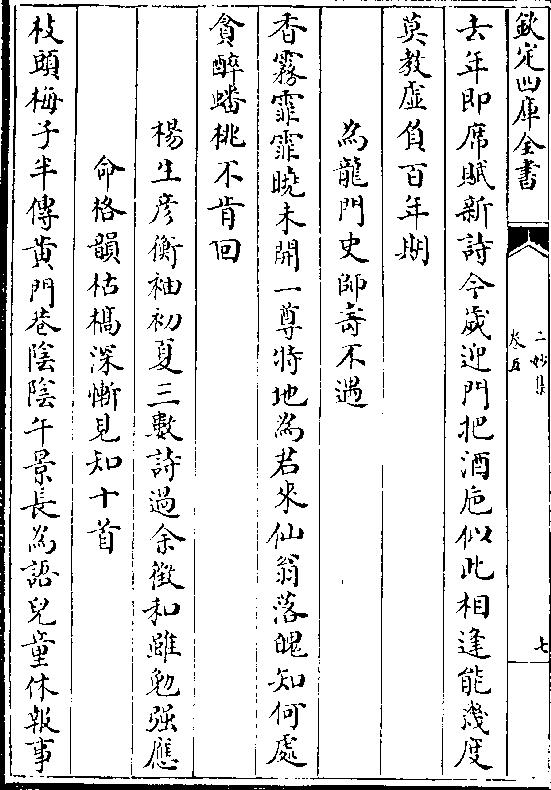 欽定四庫全書
二妙集
卷五
七
去年即席賦新詩今歲迎門把酒巵似此相逢能幾度
莫教虛負百年期
為龍門史師壽不遇
香霧霏霏曉未開一尊特地為君來仙翁落魄知何處
貪醉蟠桃不肯回
楊生彦衡袖初夏三數詩過余徵和雖勉強應
命格韻枯槁深慚見知十首
枝頭梅子半傳黄門巷陰陰午景長為語兒童休報事